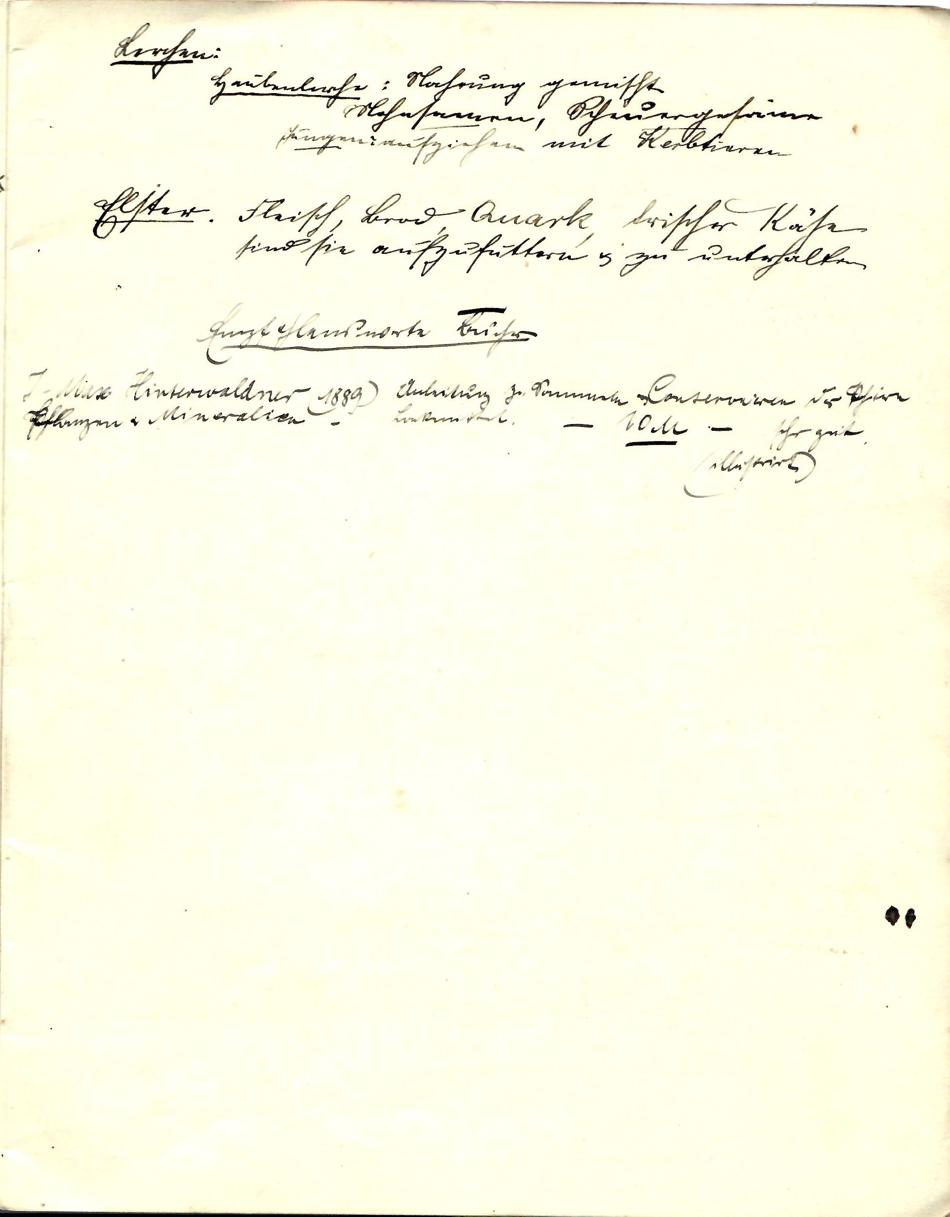 Lerchen:
Haubenlerche: Nahrung gemischt
Mohnsamen, Scheuergesäme
Jungen: aufziehen mit Kerbtieren
Elster. Fleisch, Brod, Quark, frischer Käse
sind sie aufzufüttern u zu unterhalten
Empfehlenswerte Bücher
J. Max Hinterwaldner (1889) Anleitung z. Sammeln Conservieren der Thiere
Pflanzen u Mineralien – – 10 M – sehr gut.
(illustrirt)